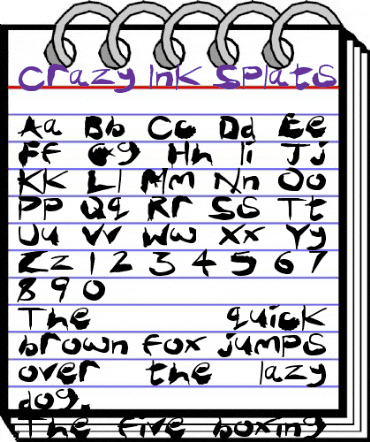 Crazy Ink Splats
Aa Bb Cc Dd Ee
Ff Gg Hh Ii Jj
Kk Ll Mm Nn Oo
Pp Qq Rr Ss Tt
Uu Vv Ww Xx Yy
Zz 1 2 3 4 5 6 7
8 9 0
The quick
brown fox jumps
over the lazy
dog.
The five boxing